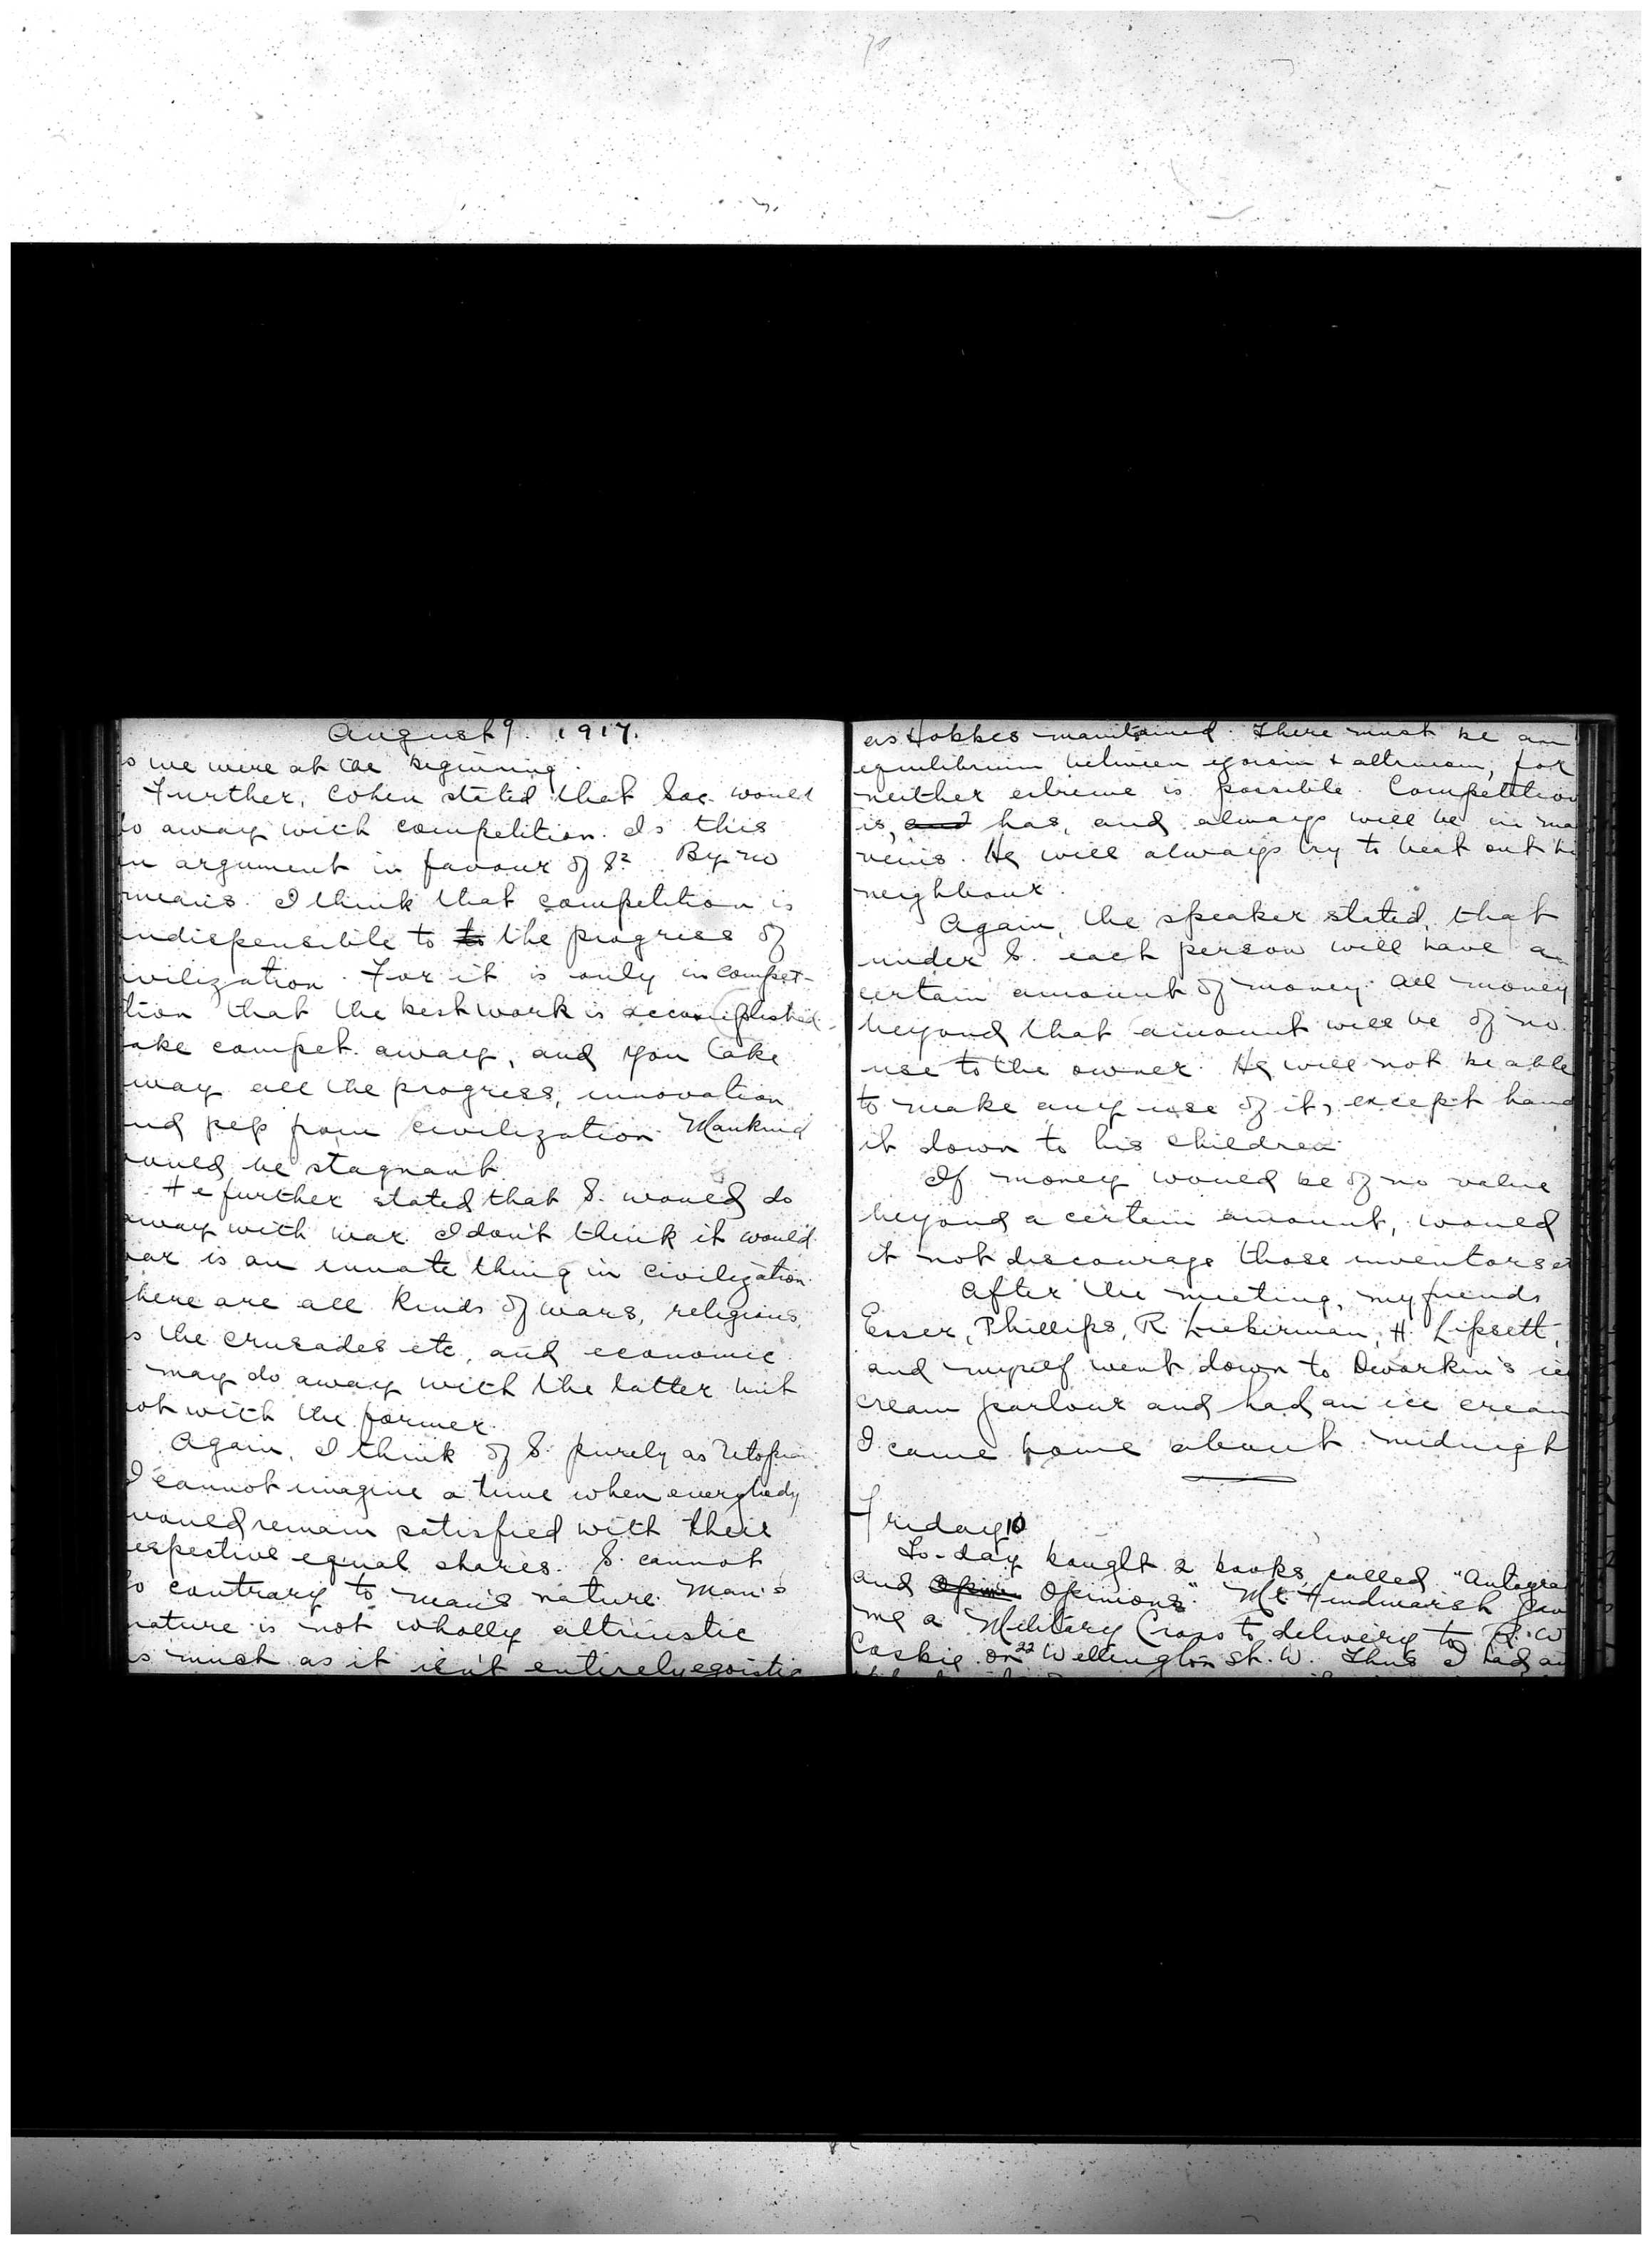 August 9. 1917.
s we were at the beginning.
Further, Cohen stated that Soc. would
o away with competition. Is this
n argument in favour of S? By no
means. I think that competition is
indispensible to to the progress of
ivilization. For it is only in compet-
tion that the best work is accomplished.
ake compet. away, and you take
way all the progress, innovation
nd pep from civilization. Mankind
would be stagnant.
He further stated that S. would do
away with war. I don't think it would.
ar is an innate thing in civilization.
here are all kinds of wars, religious,
s the crusades etc, and economic.
may do away with the latter but
ot with the former.
Again, I think of S. purely as Utopian.
I cannot imagine a time when everybody
would remain satisfied with their
espective equal shares. S. cannot
o contrary to man's nature. Man's
nature is not wholly altruistic
s much as it isn't entirely egoistic
as Hobbes maintained. There must be an
equilibrium between egoism & altruism, for
neither extreme is possible. Competition
is, and has, and always will be in ma
veins. He will always try to beat out hi
neighbour.
Again, the speaker stated, that
under S. each person will have a
certain amount of money. All money
beyond that amount will be of no
use to the owner. He will not be able
to make any use of it, except hand
it down to his children.
If money would be of no value
beyond a certain amount, would
it not discourage those inventors et
After the meeting, my friends
Esser, Phillips, R. Lieberman, H. Lipsett,
and myself went down to Dworkin's ice
cream parlour and had an ice cream
I came home about midnight
Friday 10
To-day bought 2 books called "Autogra
and Opin Opinions". Mr. Hindmarsh gav
me a Military Cross to delivery to R. W
Caskie on 22 Wellington St. W. Thus I had an